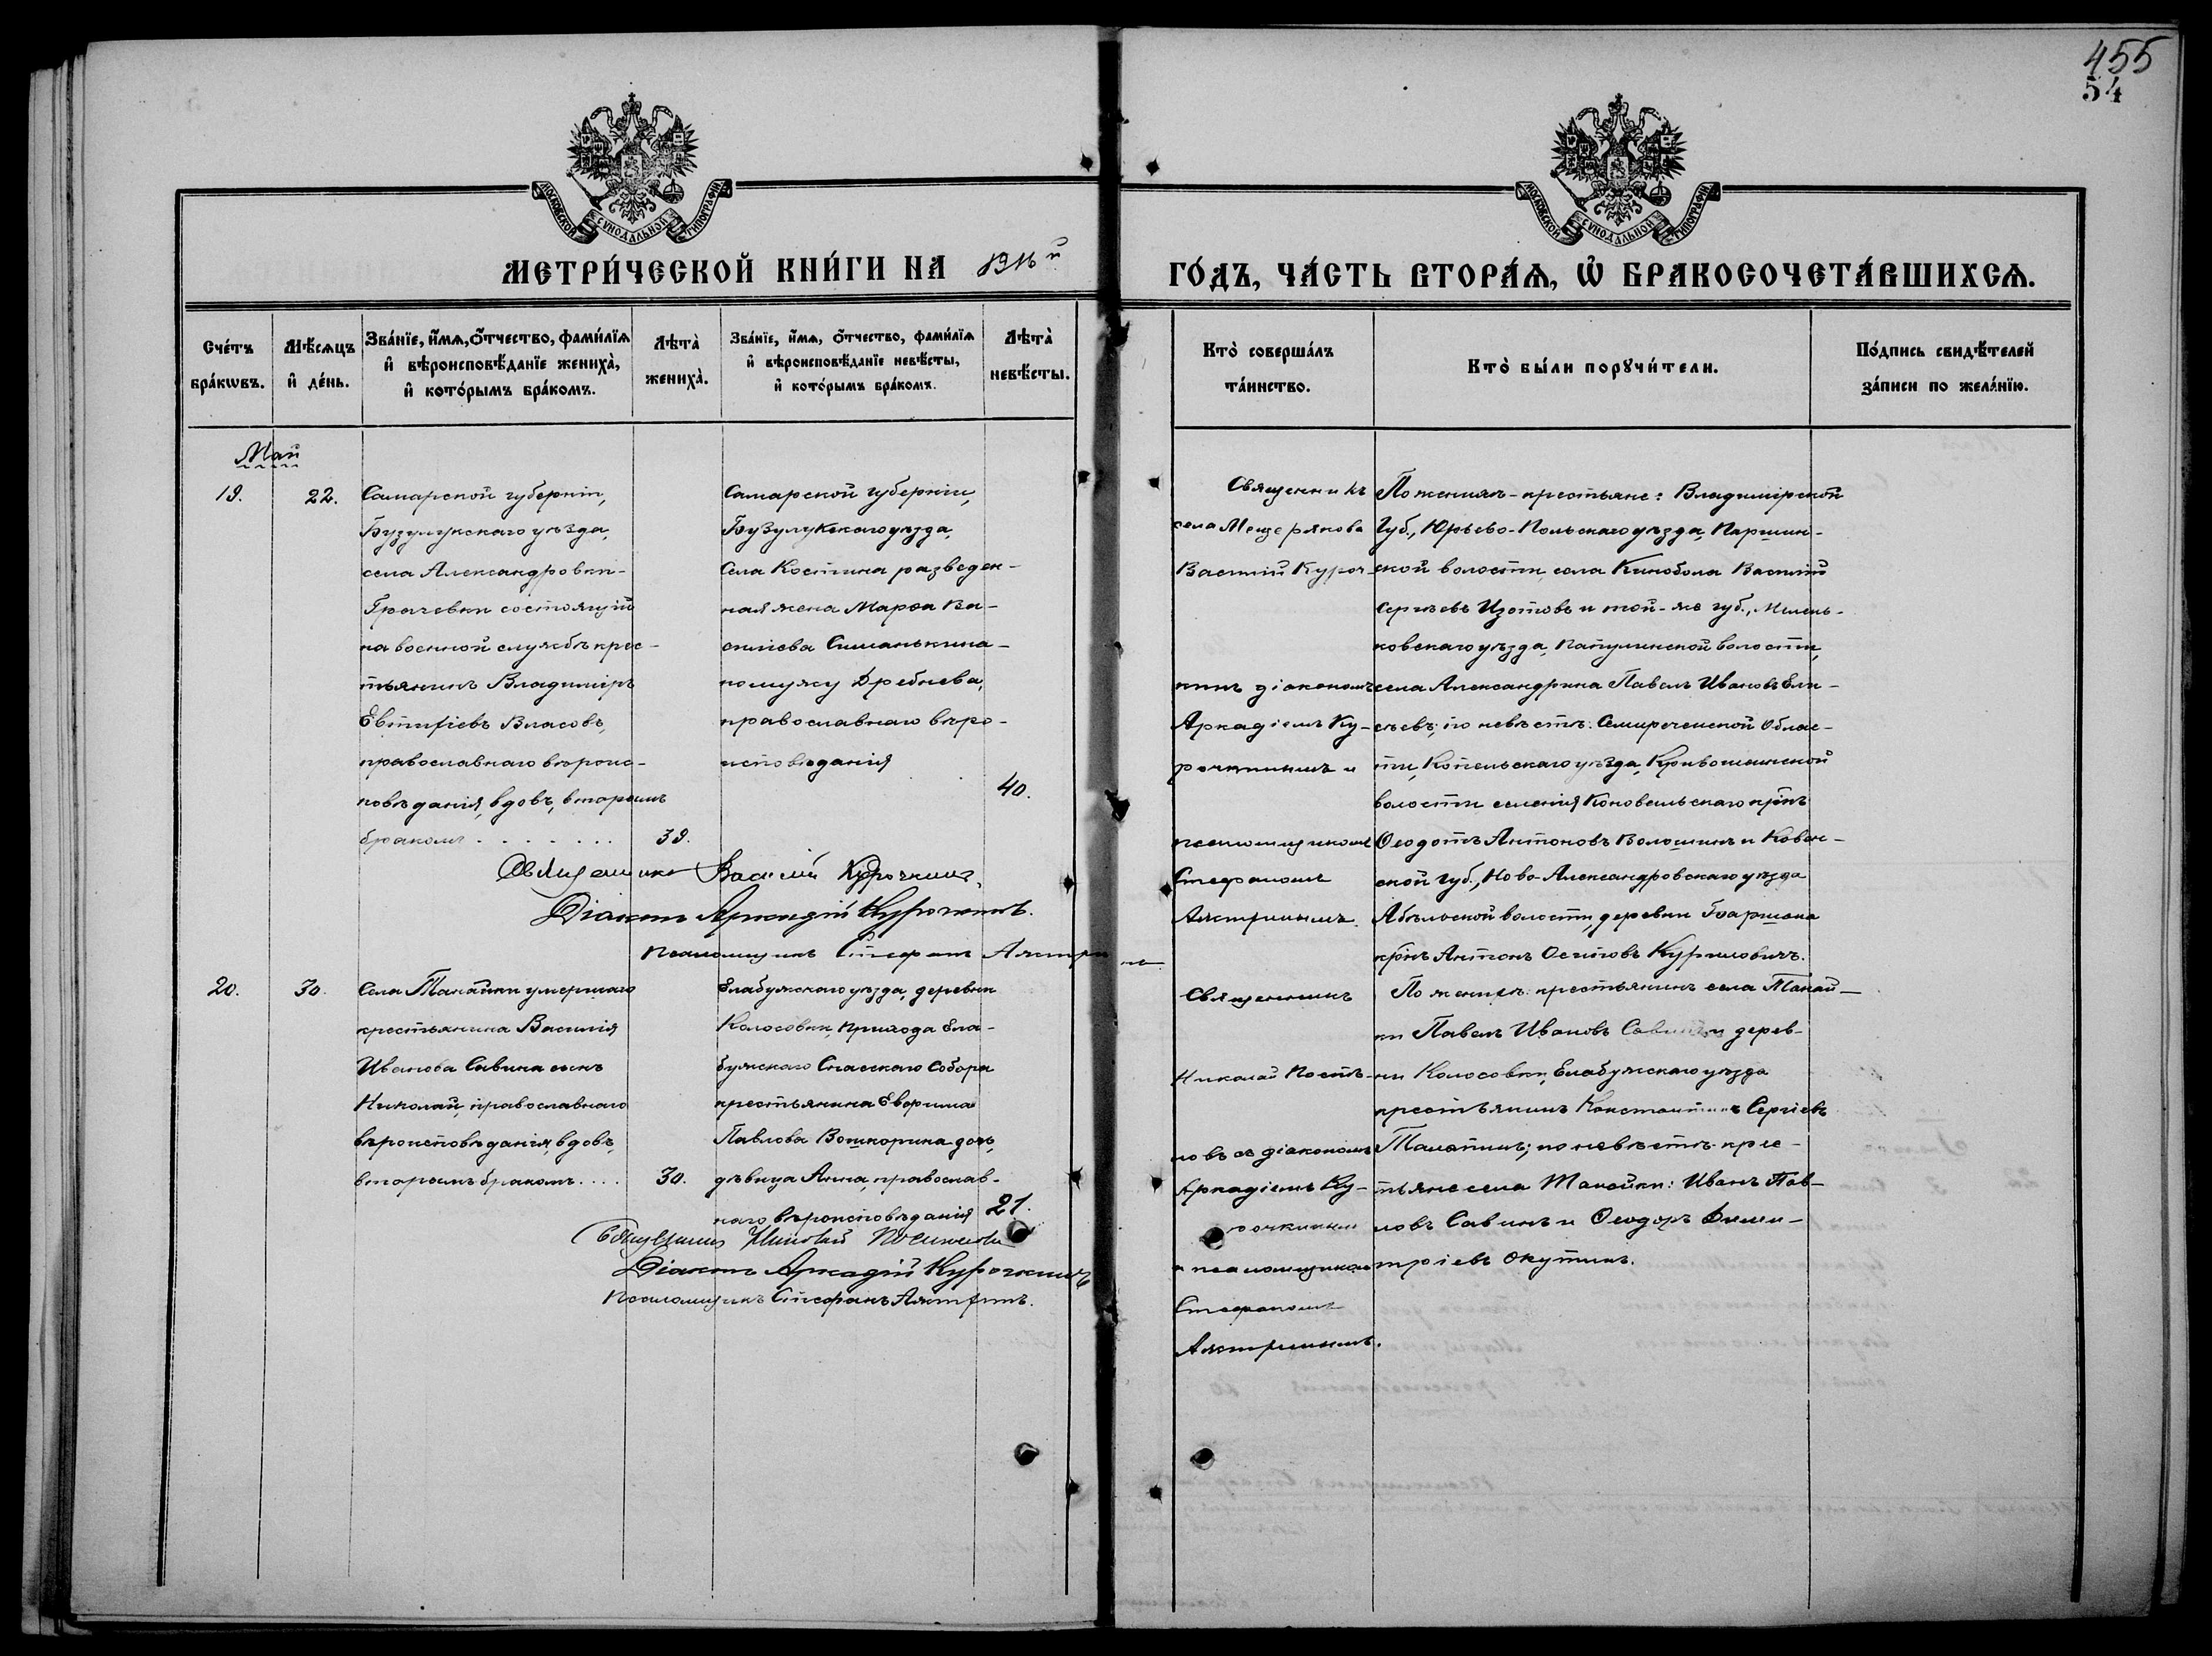 455
54
МОСКОВСКОЙ СѴНОДАЛЬНОЙ ТИПОГРАФІИ
МОСКОВСКОЙ СѴНОДАЛЬНОЙ ТИПОГРАФІИ
МЕТРИ́ЧЕСКОЙ КНИ́ГИ НА 1916 й
ГО́ДЪ, ЧА́СТЬ ВТОРА́Ѧ, Ѡ БРАКОСОЧЕТА́ВШИХСѦ.
Сче́тъ
бра́кѡвъ.
Мѣ́сѧцъ
и҆ де́нь.
Зва́нїе, и҆́мѧ, ѻ҆́тчество, фами́лїѧ
и҆ вѣроисповѣ́данїе жениха̀,
и҆ кото́рымъ бра́комъ.
Лѣта̀
жениха̀.
Зва́нїе, и҆́мѧ, ѻ҆́тчество, фами́лїѧ
и҆ вѣроисповѣ́данїе невѣ́сты,
и҆ кото́рымъ бра́комъ.
Лѣта̀
невѣ́сты.
Кто̀ соверша́лъ
та́инство.
Кто̀ бы́ли порꙋчи́тели.
По́дпись свидѣ́телей
за́писи по жела́нїю.
Май
19.
22.
Самарской губерніи,
Бузулукскаго уѣзда,
села Александровки-
Грачевки состоящій
на военной службѣ крес-
тьянинъ Владиміръ
Евтифіевъ Власовъ,
православнаго вѣроис-
повѣданія, вдовъ, вторымъ
бракомъ . . . . . . .
39.
Самарской губерніи,
Бузулукскаго уѣзда,
Села Костина разведен-
ная жена Марѳа Ва-
силіева Симанькина-
по мужу Дребнева,
православнаго вѣро-
исповѣданія
40.
Священникъ
села Мещерякова
Василій Куроч-
кинъ діакономъ
Аркадіемъ Ку-
рочкинымъ и
псаломщикомъ
Стефаномъ
Ахтринымъ.
По жениху - крестьяне: Владимірской
Губ., Юрьево-Польскаго уѣзда, Паршин-
ской волости, села Кинобола Василій
Сергѣевъ Изотовъ и той-же губ., Мелень-
ковскаго уѣзда, Папулинской волости,
села Александрина Павелъ Ивановъ Ели-
сѣевъ; по невѣстѣ: Семиреченской Облас-
ти, Копальскаго уѣзда,
волости селенія Коновальскаго кр-нъ
Ѳеодотъ Антоновъ Волошинъ и Ковен-
ской Губ., Ново-Александровскаго уѣзда
Абельской волости, деревни
кр-нъ Антонъ Осиповъ Куриловичъ.
Священникъ Василій Курочкинъ.
Діаконъ Аркадій Курочкинъ.
Псаломщикъ Стефанъ Ахтринъ
20.
30.
Села Танайки умершаго
крестьянина Василія
Иванова Савина сынъ
Николай, православнаго
вѣроисповѣданія, вдовъ,
вторымъ бракомъ. . . .
30.
Елабужскаго уѣзда, деревни
Колосовки, прихода Ела-
бужскаго Спасскаго Собора
крестьянина Евфимія
Павлова Вошкорина дочь,
дѣвица Анна, православ-
наго вѣроисповѣданія
21.
Священникъ
Николай Поспѣ-
ловъ съ діакономъ
Аркадіемъ Ку-
рочкинымъ
и псаломщикомъ
Стефаномъ
Ахтринымъ.
По жениху: крестьянинъ села Танай-
ки Павелъ Ивановъ Савинъ и дерев-
ни Колосовки, Елабужскаго уѣзда
крестьянинъ Константинъ Сергіевъ
по невѣстѣ: крес-
тьяне села Танайки: Иванъ Пав-
ловъ Савинъ и Ѳеодоръ Дими-
тріевъ Окутинъ.
Священникъ Николай Поспѣловъ
Діаконъ Аркадій Курочкинъ
Псаломщикъ Стефанъ Ахтринъ.